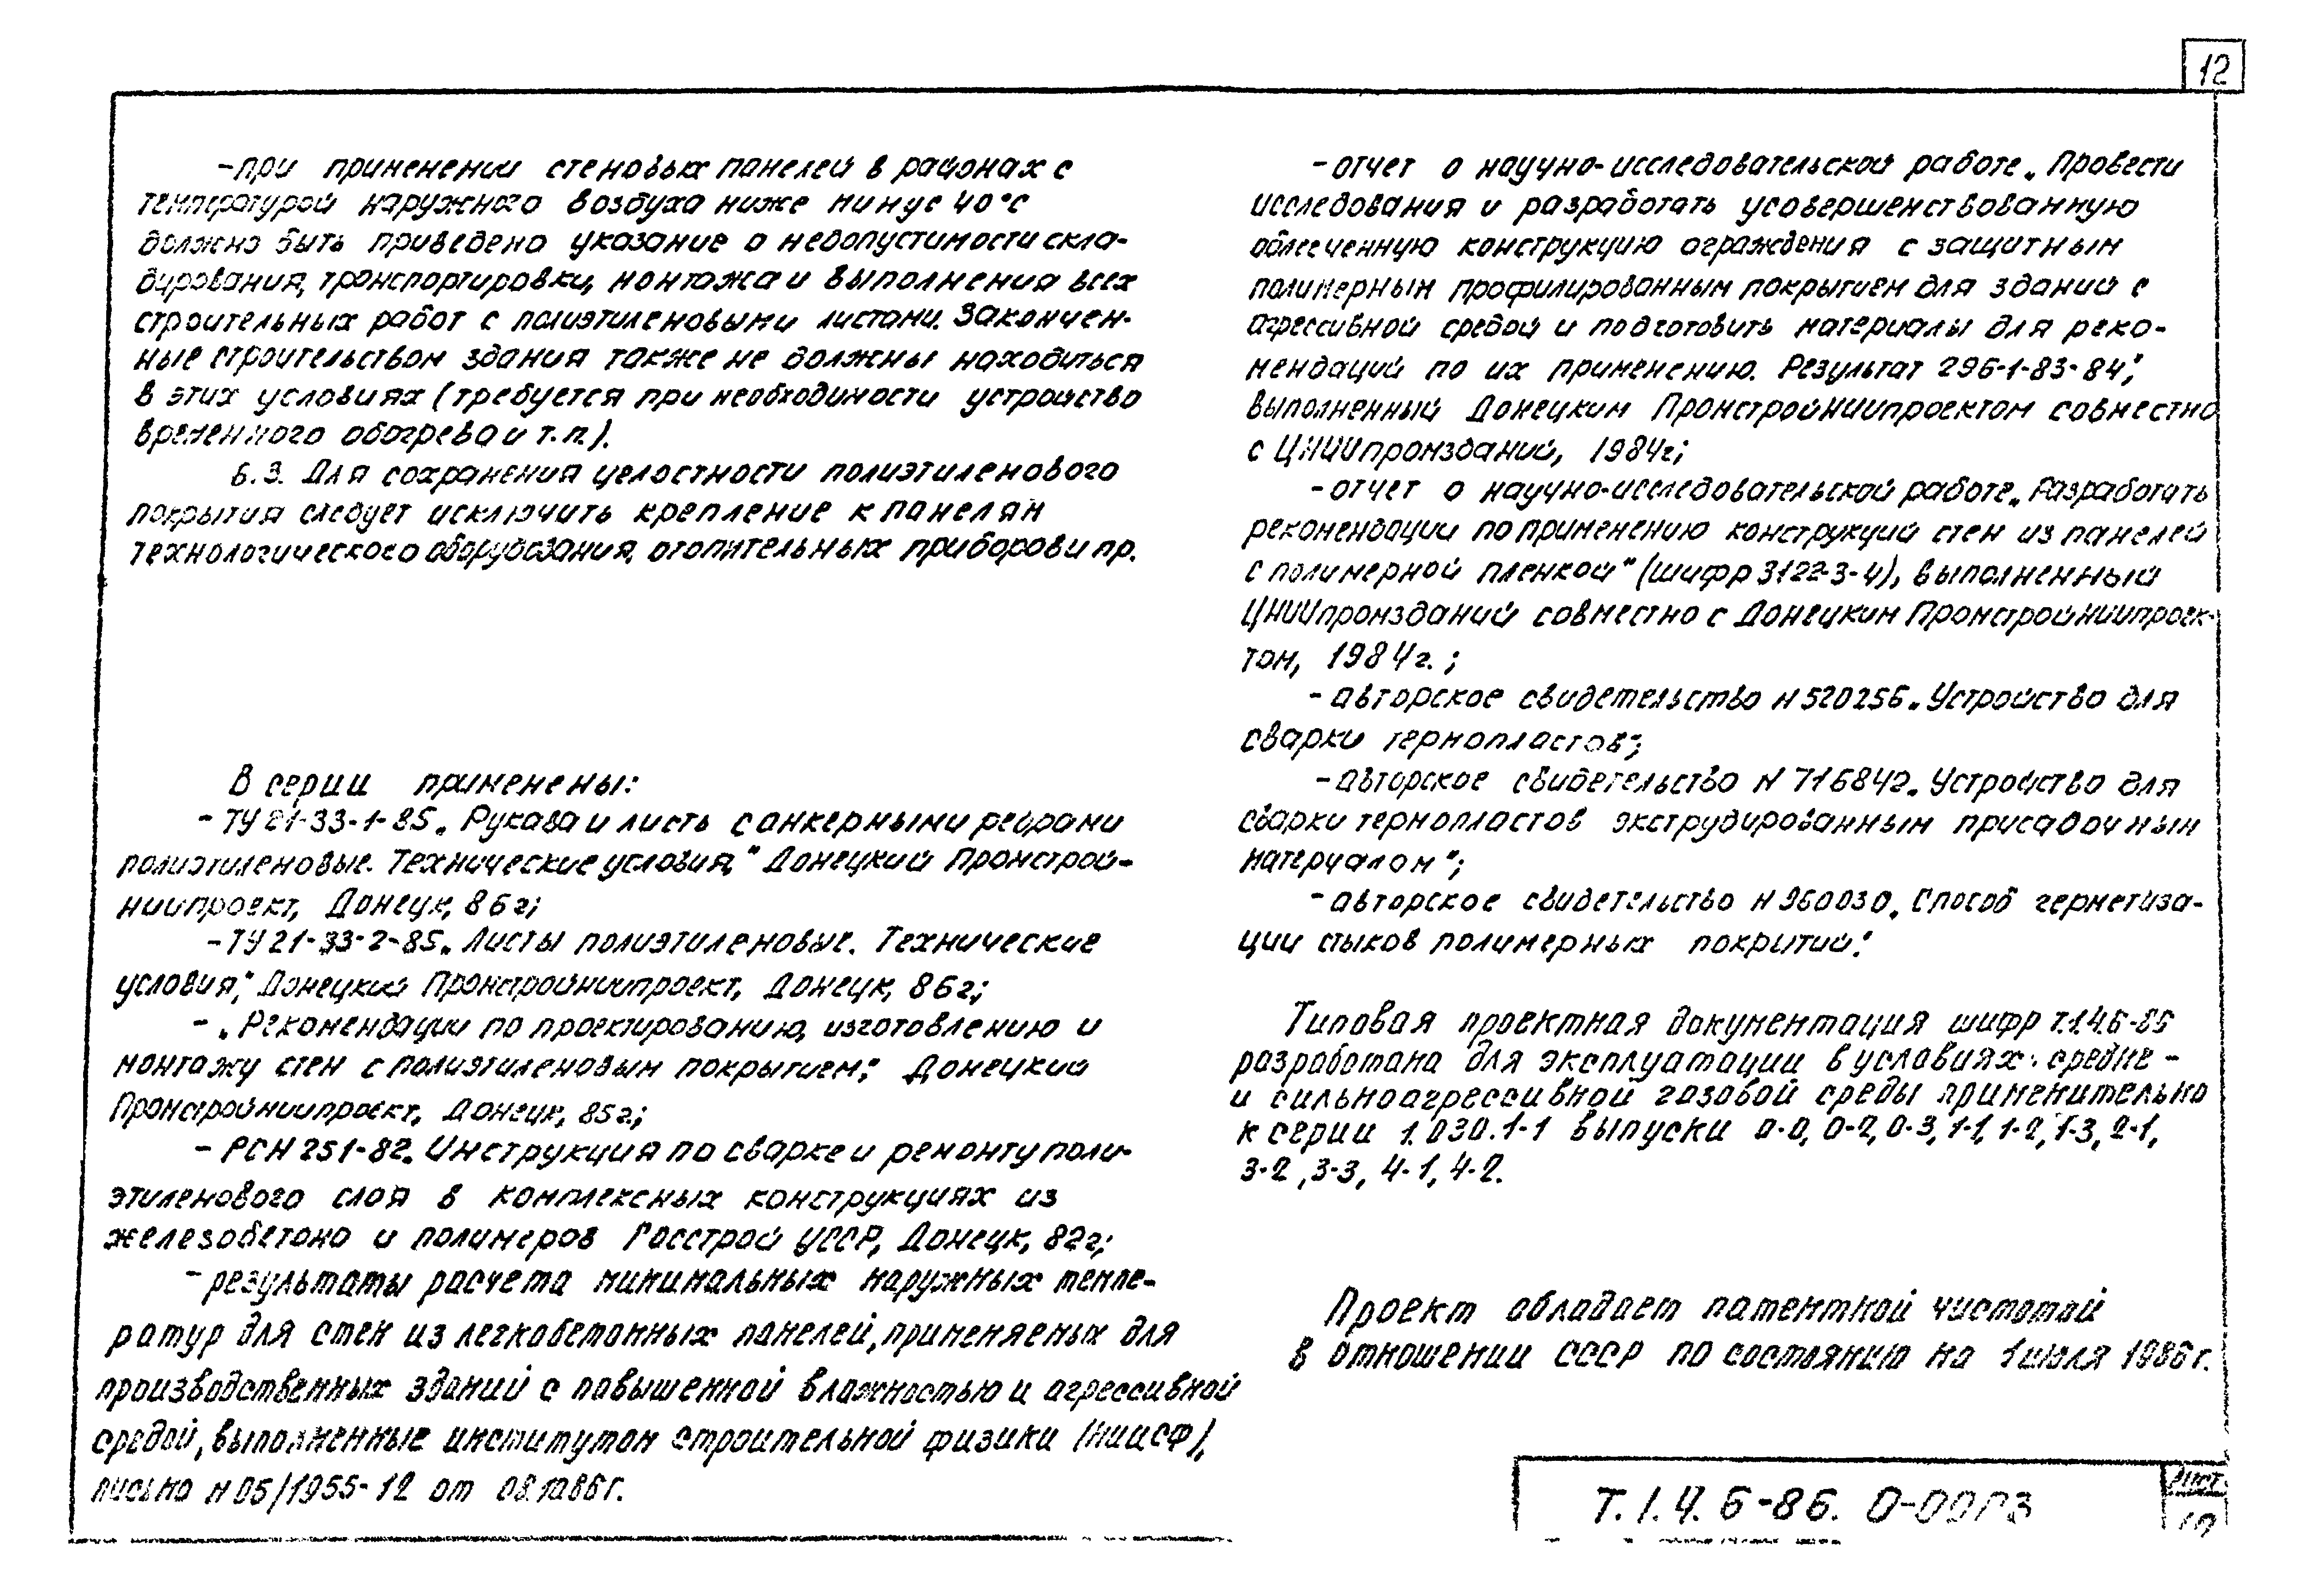 12
-при применении стеновых панелей в районах с
температурой наружного воздуха ниже минус 40°С
должно быть приведено указание о недопустимости скла-
дирования, транспортировки, монтажа и выполнения всех
строительных работ с полиэтиленовыми листами. Закончен-
ные строительством здания также не должны находиться
в этих условиях (требуется при необходимости устройство
временного обогрева и т.п.).
6.3. Для сохранения целостности полиэтиленового
покрытия следует исключить крепление к панелям
технологического оборудования, отопительных приборов и пр.
В серии применены:
- ТУ 21-33-1-85 „Рукава и листы с анкерными ребрами
полиэтиленовые. Технические условия," Донецкий Промстрой-
ниипроект, Донецк, 86г;
-ТУ 21-33-2-85 „Листы полиэтиленовые. Технические
условия", Донецкий Промстройниипроект, Донецк, 86г;
- „Рекомендации по проектированию, изготовлению и
монтажу стен с полиэтиленовым покрытием", Донецкий
Промстройниипроект, Донецк, 85г;
- РСН 251-82 „Инструкция по сварке и ремонту поли-
этиленового слоя в комплексных конструкциях из
железобетона и полимеров Госстрой УССР, Донецк, 82г;
- результаты расчета минимальных наружных темпе-
ратур для стен из легкобетонных панелей, применяемых для
производственных зданий с повышенной влажностью и агрессивной
средой, выполненные институтом строительной физики (НИИСФ),
письмо н 05/1955-12 от
-отчет о научно-исследовательской работе „Провести
исследования и разработать усовершенствованную
облегченную конструкцию ограждения с защитным
полимерным профилированным покрытием для зданий с
агрессивной средой и подготовить материалы для реко-
мендаций по их применению. Результат 296-1-83-84",
выполненный Донецким ПромстройНИИпроектом совместно
с ЦНИИпромзданий, 1984г;
-отчет о научно-исследовательской работе „Разработать
рекомендации по применению конструкций стен из панелей
с полимерной пленкой" (шифр 3122-3-4), выполненный
ЦНИИпромзданий совместно с Донецким ПромстройНИИпроек-
том, 1984г.;
-авторское свидетельство н 520256 „Устройство для
сварки термопластов";
-авторское свидетельство н 716842 „Устройство для
сварки термопластов экструдированным присадочным
материалом";
-авторское свидетельство н 960030 „Способ герметиза-
ции стыков полимерных покрытий".
Типовая проектная документация шифр Т.1.4.6-86
разработана для эксплуатации в условиях средне-
и сильноагрессивной газовой среды применительно
к серии 1.030.1-1 выпуски 0-0, 0-2, 0-3, 1-1, 1-2, 1-3, 2-1,
3-2, 3-3, 4-1, 4-2.
Проект обладает патентной чистотой
в отношении СССР по состоянию на 1 июля 1986г.
Т.1.4.6-86.
Лист